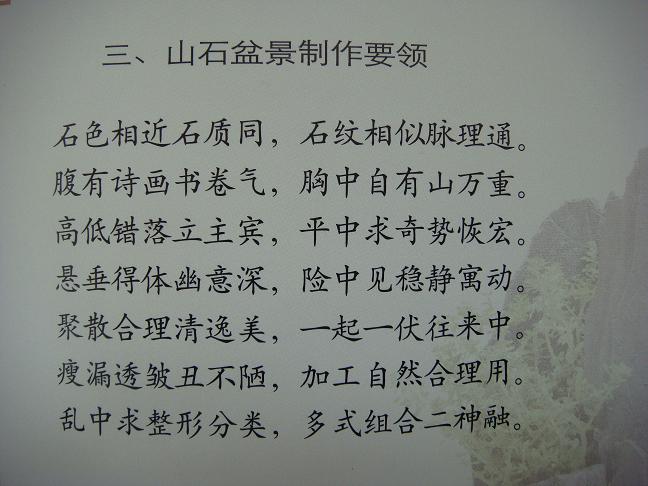 三、山石盆景制作要领
石色相近石质同，石纹相似脉理通。
腹有诗画书卷气，胸中自有山万重。
高低错落立主宾，平中求奇势恢宏。
悬垂得体幽意深，险中见稳静寓动。
聚散合理清逸美，一起一伏往来中。
瘦漏透皱丑不陋，加工自然合理用。
乱中求整形分类，多式组合二神融。